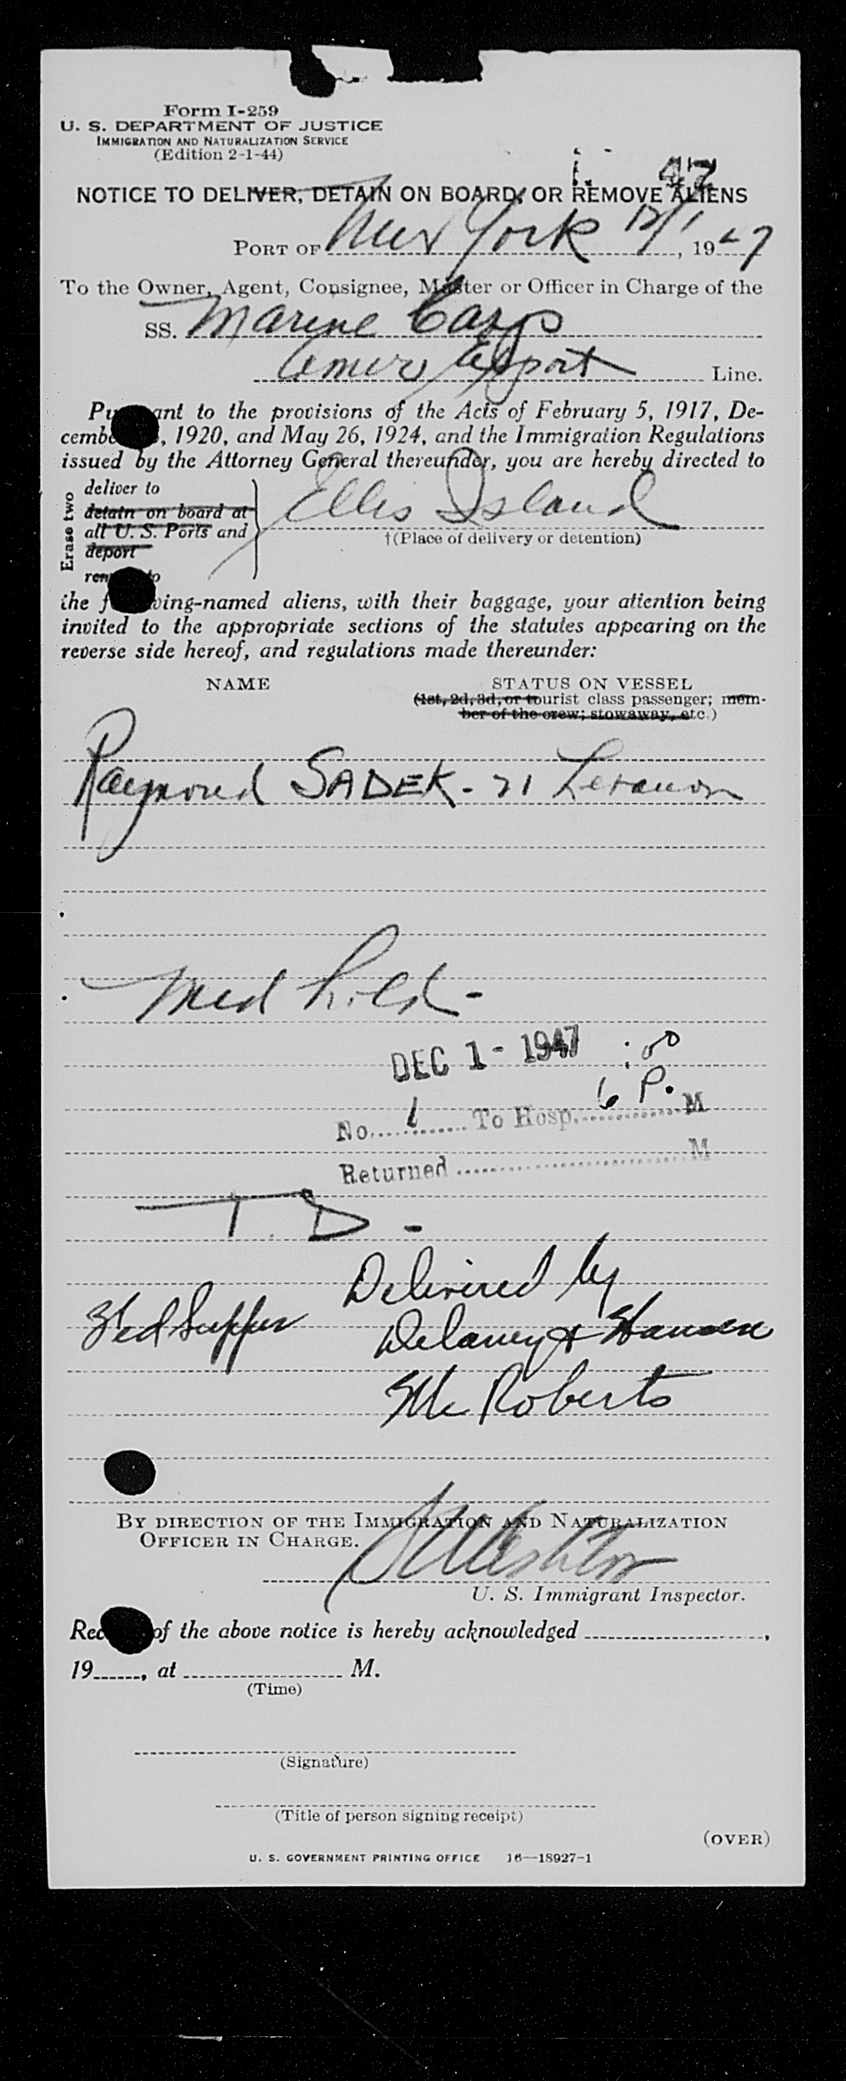 Form I-259
U. S. DEPARTMENT OF JUSTICE
IMMIGRATION AND NATURALIZATION SERVICE
(Edition 2-1-44)
47
NOTICE TO DELIVER, DETAIN ON BOARD, OR REMOVE ALIENS
PORT OF New York 12/1, 1947
To the Owner, Agent, Consignee, Master or Officer in Charge of the
SS. Marine Carp
Amer Export Line.
Pu ant to the provisions of the Acts of February 5, 1917, De-
cembe , 1920, and May 26, 1924, and the Immigration Regulations
issued by the Attorney General thereunder, you are hereby directed to
Erase two
deliver to
detain on board at
all U. S. Ports and
deport
rem to
Ellis Island
†(Place of delivery or detention)
the f wing-named aliens, with their baggage, your attention being
invited to the appropriate sections of the statutes appearing on the
reverse side hereof, and regulations made thereunder:
NAME STATUS ON VESSEL
(1st, 2d, 3d, or tourist class passenger; mem-
ber of the crew; stowaway, etc.)
Raymond SADEK - 21 Lebanon
Med hold -
DEC 1 - 1947 :00
No. 1 To Hosp. 6 P. M
Returned M
T. D -
Delivered by
Fed Supper Delaney & Hansen
Roberts
BY DIRECTION OF THE IMMIGRATION AND NATURALIZATION
OFFICER IN CHARGE.
U. S. Immigrant Inspector.
Rec of the above notice is hereby acknowledged ,
19 , at M.
(Time)
(Signature)
(Title of person signing receipt)
(OVER)
U. S. GOVERNMENT PRINTING OFFICE 16—18927-1